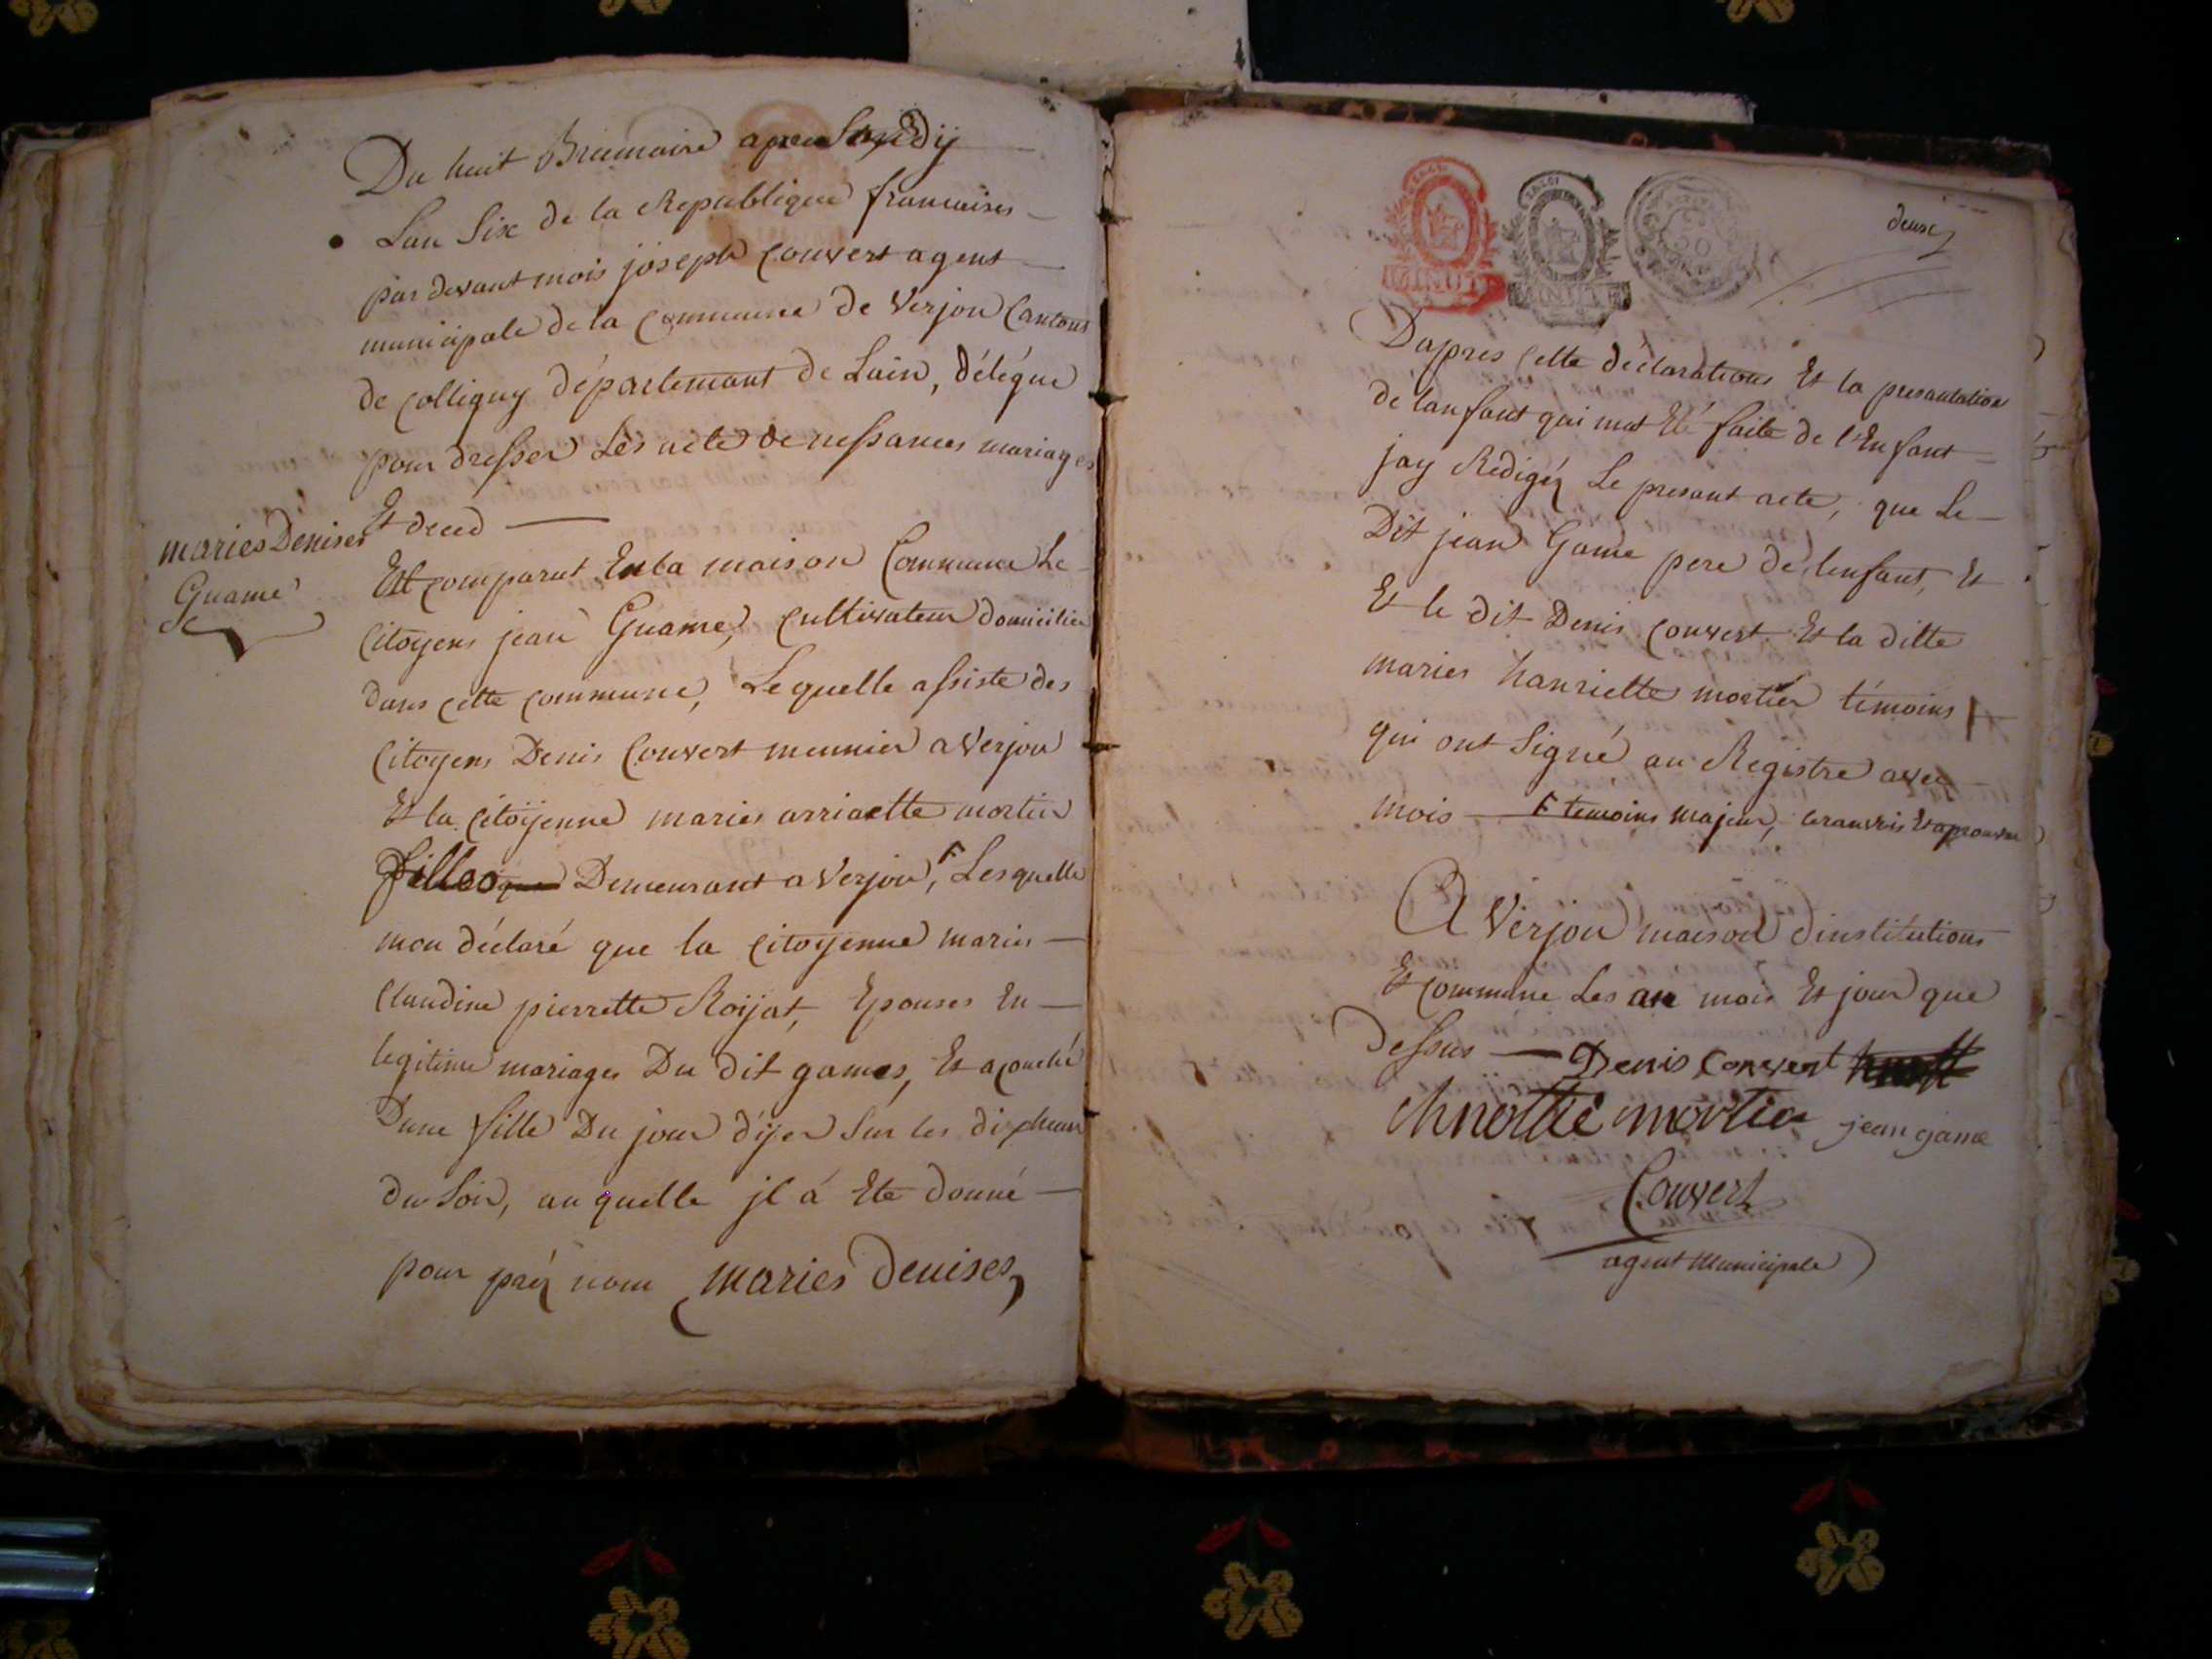 Du huit Brumaire apres midÿ
Lan Six de la Republique francaises
par devant mois joseph Convert agent
municipale de la Commune de Verjon Cantons
de Colligny département de Lain, délégue
pour dresser Les acte de nessances mariages
Et deced
maries Denises
Gname
Est comparut En la maison Commune Le
Citoyens jean Gname, Cultivateur domicilie
dans cette commune, Le quelle assiste des
Citoyens Denis Convert meunier a Verjon
Et la Citoÿenne maries arriaette mortier
fille Demeurant a Verjon, Les quelle
mon déclaré que la Citoyenne maries
Claudine pierrette Roijat, Epouses En
legitime mariages Du dit games, Et acouché
Dune fille Du jour d'ijer sur les dix heur
du Soir, au quelle jl á Ete donné
pour préz nom maries Denises
MINUTE
MINUTE
deux
Dapres Cette déclarations Et la presantation
de lanfant qui mat Eté faite de l'Enfant
jay Redigéz Le presant acte, que Le
Dit jean Game pere de lenfant, Et
Et le dit Denis Convert Et la ditte
maries hanriette mortier témoins
qui ont Signé au Registre avec
mois temoins majeur,
A Verjon maison dinstitutions
Et commune Les an mois Et jour que
dessus Denis Convert
mortier jean game
Convert
agent Municipale